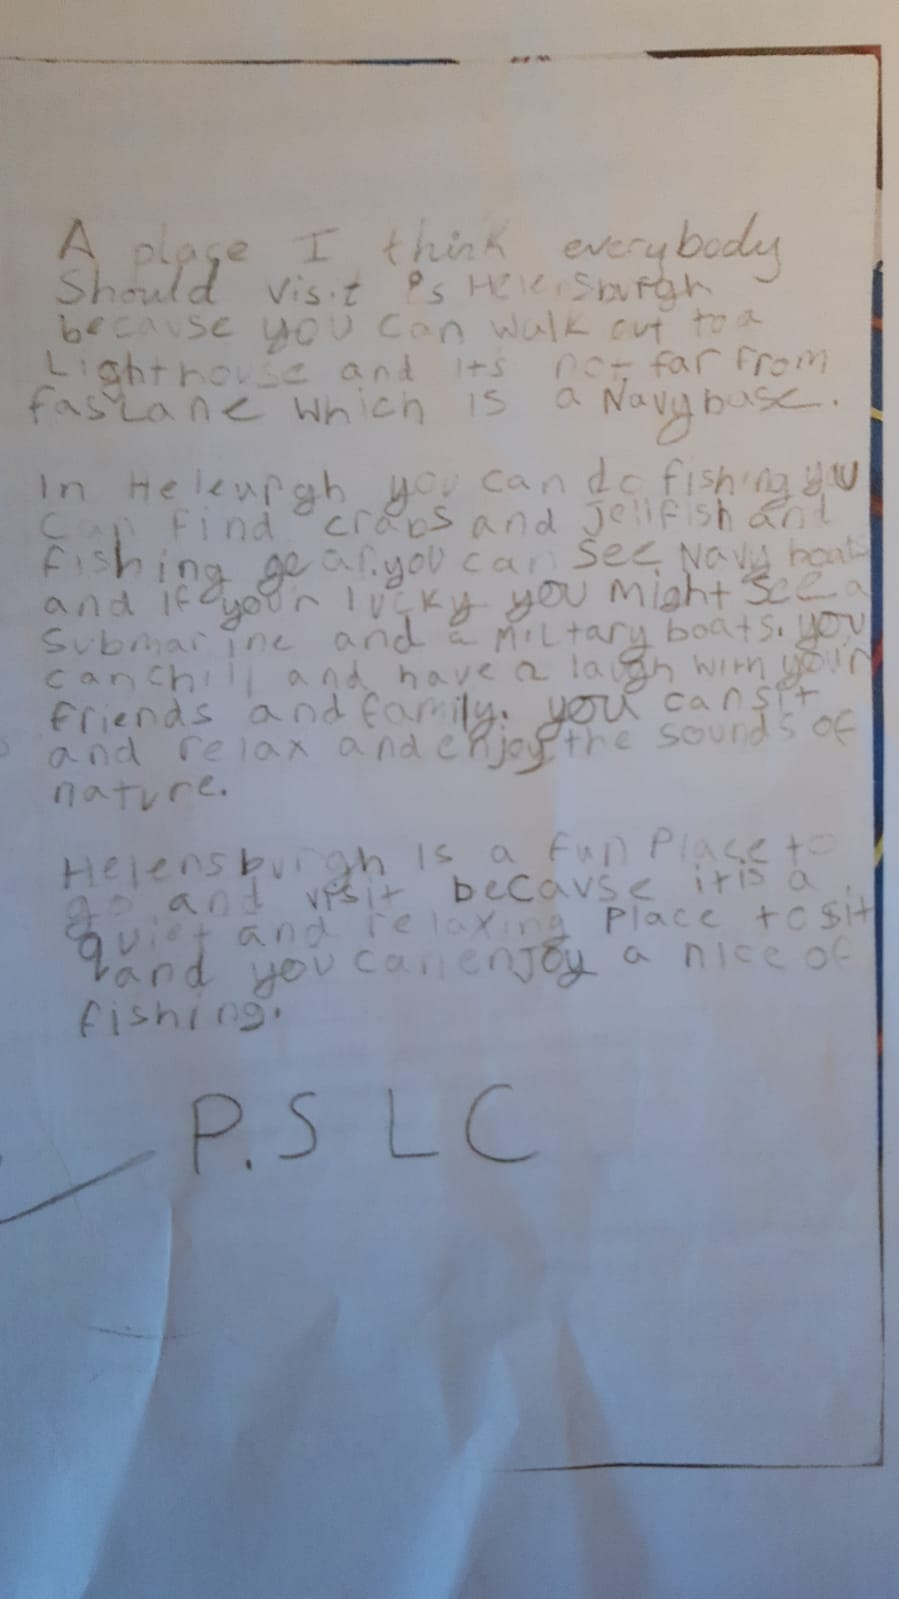 A place I think everybody
Should visit is Helensburgh
because you can walk out to a
Lighthouse and it's not far From
faslane which is a Navy base.
In Heleurgh you can do fishing you
can find crabs and Jellfish and
fishing gear. you can see Navy boats
and if your lucky you might see a
submarine and a Miltary boats. you
can chill and have a laugh with your
friends and family. you can sit
and relax and enjoy the sounds of
nature.
Helensburgh is a fun Place to
go and visit because it is a
quiet and relaxing Place to sit
and you can enjoy a nice of
fishing.
P.S L C